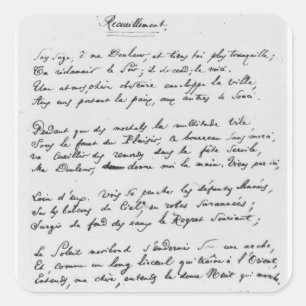 Recueillement
Sois sage, ô ma Douleur, et tiens toi plus tranquille;
Tu réclamais le Soir; il descend; le voici:
Une atmosphère obscure enveloppe la ville,
Aux uns portant la paix, aux autres le Souci.
Pendant que des mortels la multitude vile
Sous le fouet du Plaisir, ce bourreau sans merci,
Va cueillir des remords dans la fête servile,
Ma Douleur, donne moi la main; Viens par ici,
Loin d'eux. Vois se pencher les défuntes Années,
Sur les balcons du Ciel, en robes surannées;
Surgir du fond des eaux le Regret Souriant;
Le Soleil moribond s'endormir sous une arche,
Et comme un long linceul qui traîne à l'Orient,
Entends, ma chère, entends la douce Nuit qui marche.